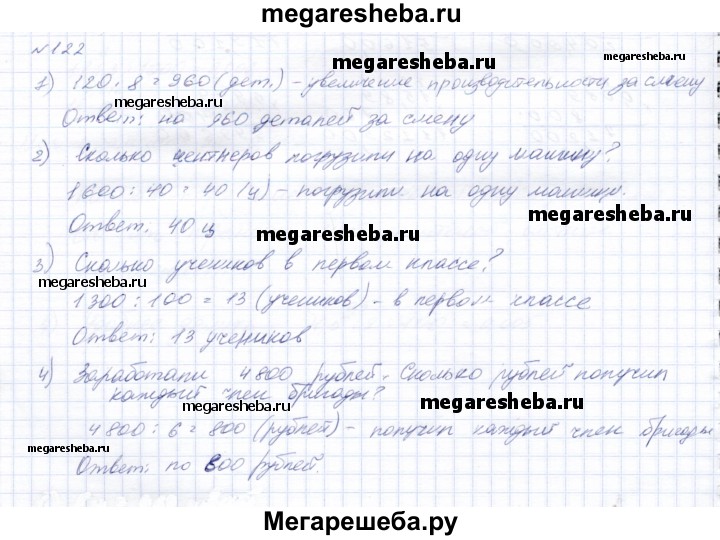 megaresheba.ru
№122
megaresheba.ru
megaresheba.ru
1) 120 · 8 = 960 (дет.) – увеличение производительности за смену
megaresheba.ru
Ответ: на 960 деталей за смену
2) Сколько центнеров погрузили на одну машину?
1600 : 40 = 40 (ц) – погрузили на одну машину.
megaresheba.ru
Ответ. 40 ц
megaresheba.ru
3) Сколько учеников в первом классе?
megaresheba.ru
1300 : 100 = 13 (учеников) – в первом классе
Ответ: 13 учеников
4) Заработали 4800 рублей. Сколько рублей получил
каждый член бригады?
megaresheba.ru
megaresheba.ru
4800 : 6 = 800 (рублей) – получил каждый член бригады
megaresheba.ru
Ответ: по 800 рублей.
Мегарешеба.ру